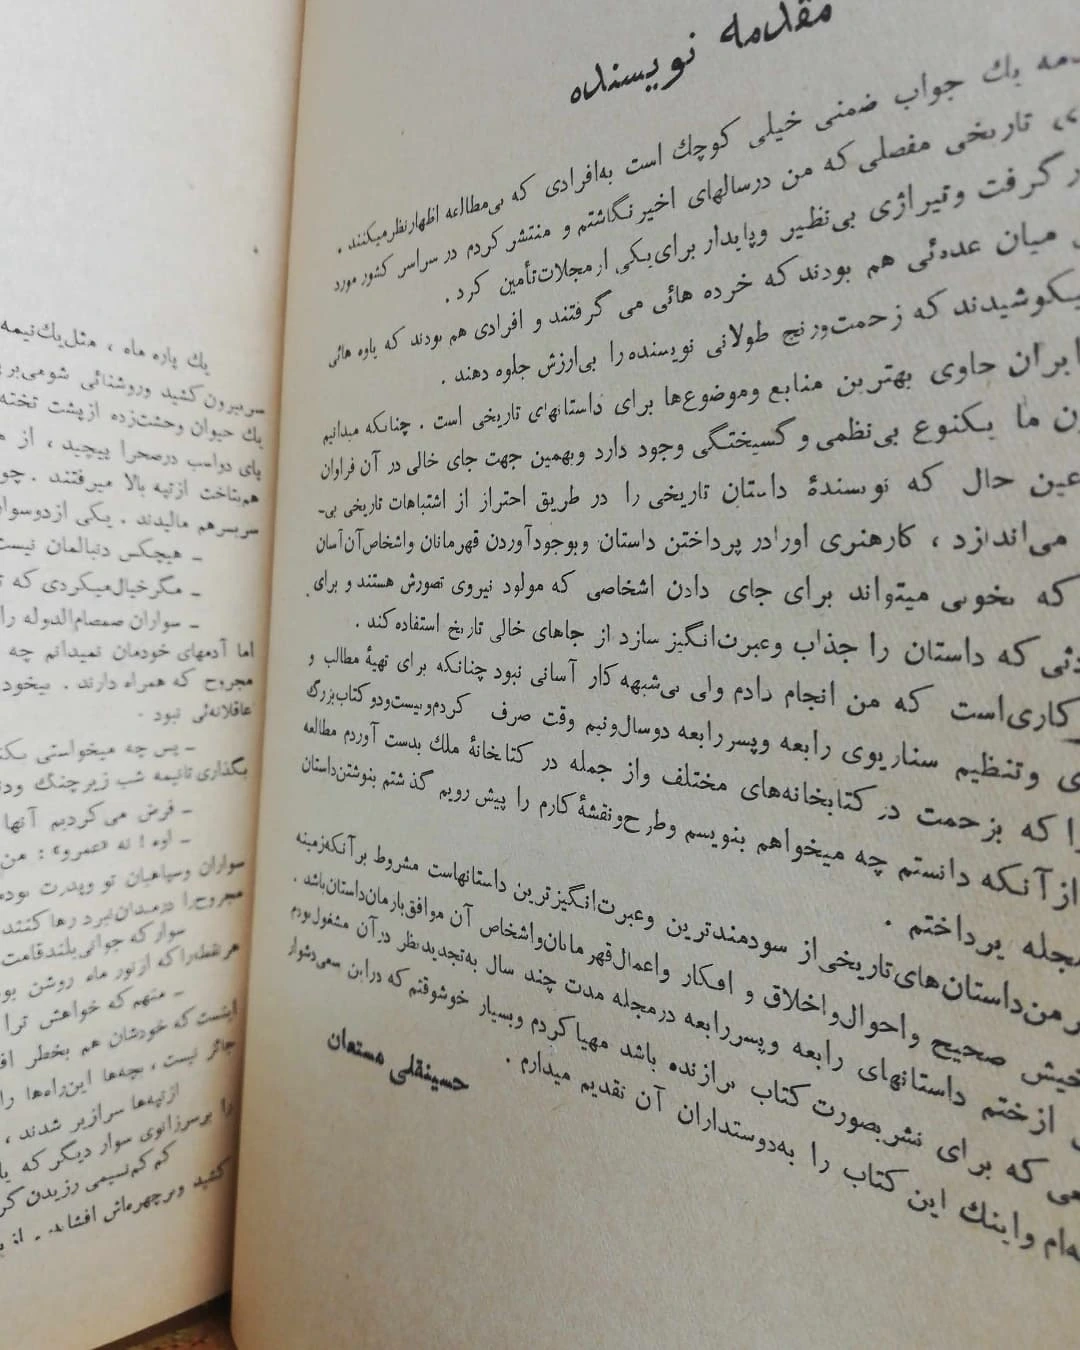 مقدمه نویسنده
یك جواب ضمنی خیلی کوچك است به‌افرادی که بی‌مطالعه اظهارنظرمیکنند .
تاریخی مفصلی که من درسالهای اخیر نگاشتم و منتشر کردم در سراسر کشور مورد
گرفت وتیراژی بی‌نظیر وپایدار برای‌یکی ازمجلات‌تأمین کرد .
میان عده‌ئی هم بودند که خرده هائی می گرفتند و افرادی هم بودند که یاوه هائی
میکوشیدند که زحمت‌ورنج طولانی نویسنده‌را بی‌ارزش جلوه دهند .
ایران حاوی بهترین منابع وموضوع‌ها برای داستانهای تاریخی است . چنانکه میدانیم
ما یکنوع بی‌نظمی و گسیختگی وجود دارد وبهمین جهت جای خالی در آن فراوان
عین حال که نویسندهٔ داستان تاریخی را در طریق احتراز از اشتباهات تاریخی بی-
می‌اندازد ، کارهنری اورادر پرداختن داستان وبوجودآوردن قهرمانان واشخاص‌آن‌آسان
که بخوبی میتواند برای جای دادن اشخاصی که مولود نیروی تصورش هستند و برای
که داستان را جذاب وعبرت‌انگیز سازد از جاهای خالی تاریخ استفاده‌کند .
کاری‌است که من انجام دادم ولی بی‌شبهه کار آسانی نبود چنانکه برای تهیهٔ مطالب و
وتنظیم سناریوی رابعه وپسررابعه دوسال‌ونیم وقت صرف کردم‌وبیست‌ودو کتاب‌بزرگ
را که بزحمت در کتابخانه‌های مختلف واز جمله در کتابخانهٔ ملك بدست آوردم مطالعه
ازآنکه دانستم چه میخواهم بنویسم وطرح‌ونقشهٔ‌کارم را پیش رویم گذشتم بنوشتن‌داستان
مجله پرداختم .
من‌داستان‌های‌تاریخی‌از سودمندترین وعبرت‌انگیزترین داستانهاست مشروط برآنکه‌زمینه
صحیح واحوال‌واخلاق و افکار واعمال‌قهرمانان‌واشخاص آن موافق‌بازمان‌داستان‌باشد .
ازختم داستانهای رابعه وپسررابعه درمجله مدت چند سال به‌تجدیدنظر درآن مشغول‌بودم
که برای نشربصورت کتاب برازنده باشد مهیاکردم وبسیار خوشوقتم که دراین سعی‌دشوار
واینك این کتاب را به‌دوستداران آن تقدیم میدارم .
حسینقلی مستعان
یك پاره ماه ، مثل‌یك‌نیمه
سربیرون کشید وروشنائی شومی‌بر
یك حیوان وحشت‌زده ازپشت تخته
پای دواسب درصحرا پیچید ، از
هم‌بتاخت ازتپه بالا میرفتند .
سربسرهم مالیدند . یکی ازدوسوار
ـ هیچکس دنبالمان نیست
ـ مگرخیال‌میکردی که
ـ سواران صمصام‌الدوله را
اما آدمهای خودمان نمیدانم چه
مجروح که همراه دارند . بیخود
عاقلانه‌ئی نبود .
ـ پس چه میخواستی
بگذاری تانیمه شب زیرچنگ
ـ فرض می‌کردیم آنها
ـ اوه ! نه «عمرو» : من
سواران وسپاهیان تو وپدرت
مجروح‌را درمیدان‌نبرد رهاکنند
سوار که جوانی‌بلندقامت
هرنقطه‌راکه ازنور ماه روشن
ـ منهم که خواهش ترا
اینست که خودشان هم بخطر
جائز نیست ، بچه‌ها این‌راه‌ها را
ازتپه‌ها سرازیر شدند ،
را برسرزانوی سوار دیگر که
کم‌کم‌نسیمی وزیدن
کشید وبرچهره‌اش افشاند .